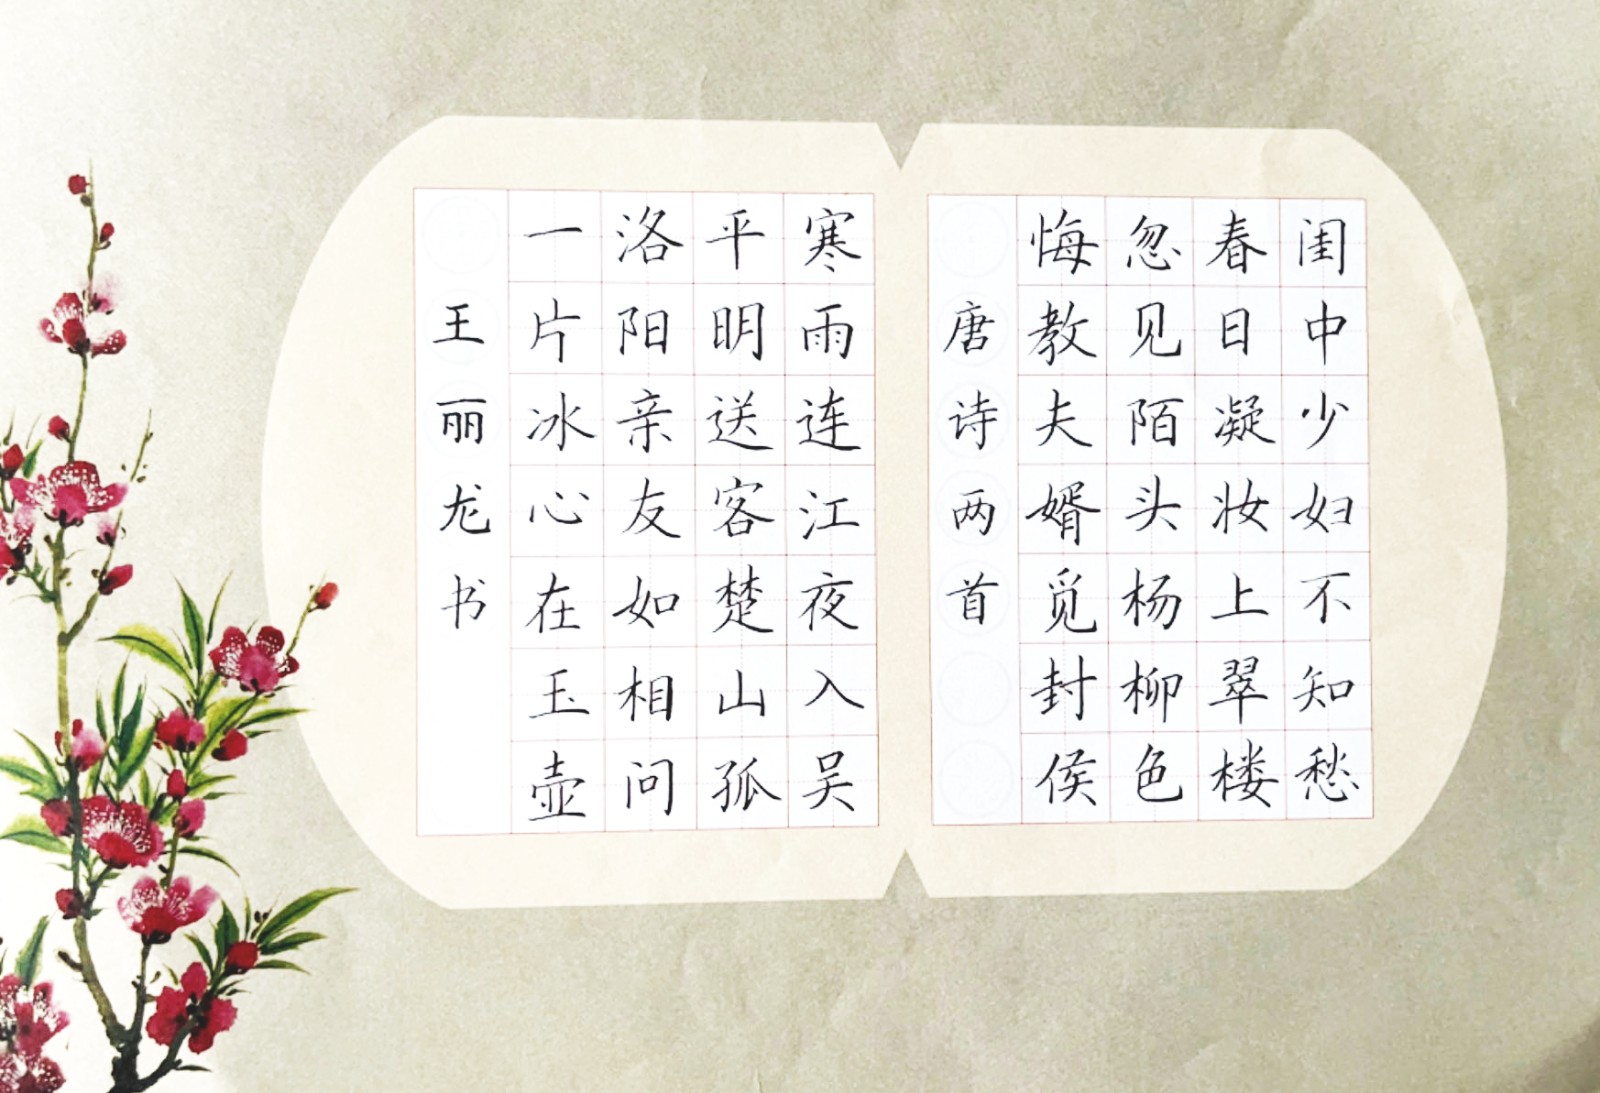 闺中少妇不知愁
春日凝妆上翠楼
忽见陌头杨柳色
悔教夫婿觅封侯
唐诗两首
寒雨连江夜入吴
平明送客楚山孤
洛阳亲友如相问
一片冰心在玉壶
王丽龙书